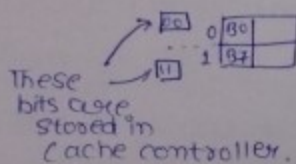 00
0 B0
1 B7
11
These
bits are
stored in
Cache controller.